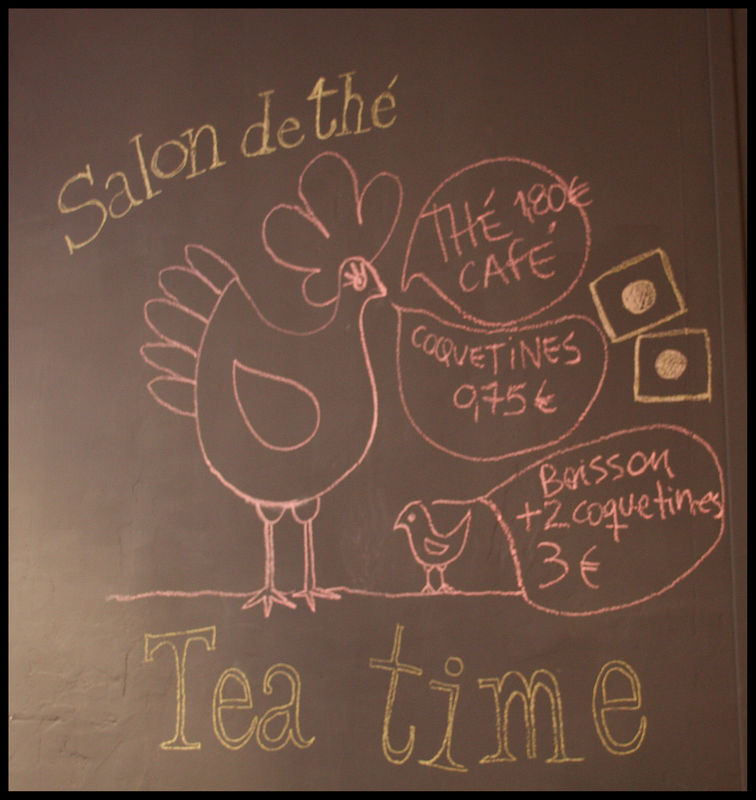 Salon de thé
THÉ 1,80€
CAFÉ
COQUETINES
0,75 €
Boisson
+2 coquetines
3 €
Tea time